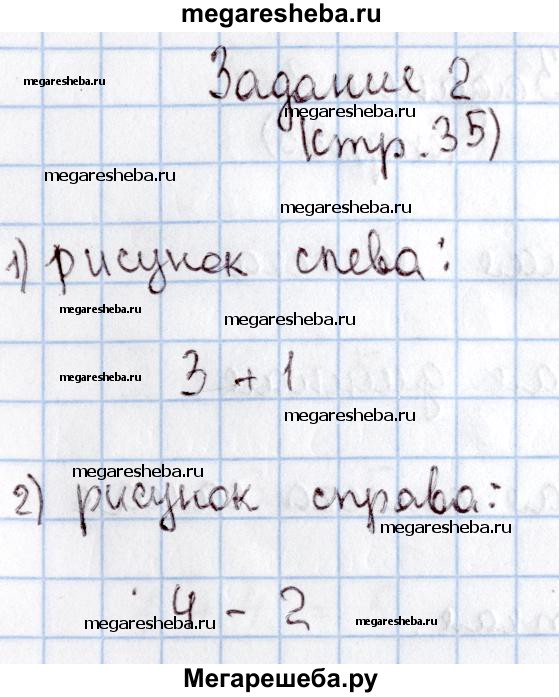 megaresheba.ru
megaresheba.ru
Задание 2
megaresheba.ru
(стр. 35)
megaresheba.ru
megaresheba.ru
1) рисунок слева:
megaresheba.ru
megaresheba.ru
megaresheba.ru
3 + 1
megaresheba.ru
megaresheba.ru
2) рисунок справа:
megaresheba.ru
4 - 2
megaresheba.ru
megaresheba.ru
Мегарешеба.ру